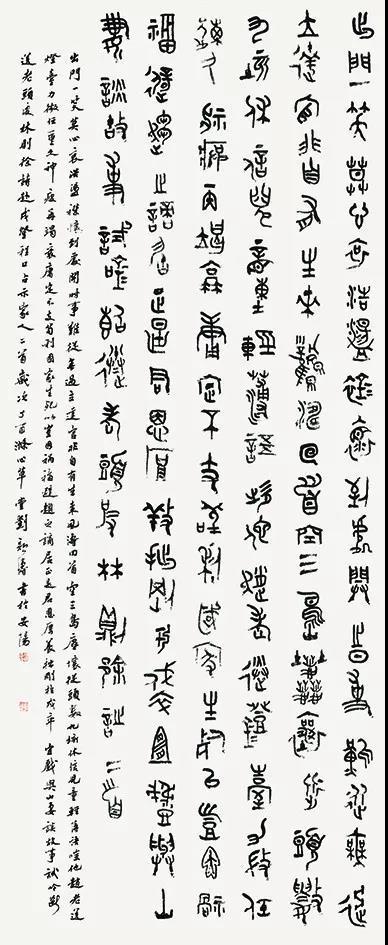 出門一笑莫心哀浩盪襟懷到處開時事難從無過
立達官非自有生來風濤回首空三島塵壤從頭數
九垓休信兒童輕薄語嗤他趙老送燈臺力微任
重久神疲再竭衰庸定不支苟利國家生死以豈因禍
福避趨之謫居正是君恩厚養拙剛於戍卒宜戲與山
妻談故事試吟斷送老頭皮林則徐詩二首
出門一笑莫心哀浩盪襟懷到處開時事難從無過立達官非自有生來風濤回首空三島塵壤從頭數九垓休信兒童輕薄語嗤他趙老送
燈臺力微任重久神疲再竭衰庸定不支苟利國家生死以豈因禍福避趨之謫居正是君恩厚養拙剛於戍卒宜戲與山妻談故事試吟斷
送老頭皮林則徐詩赴戍登程口占示家人二首歲次丁酉滌心草堂劉顏濤書於安陽